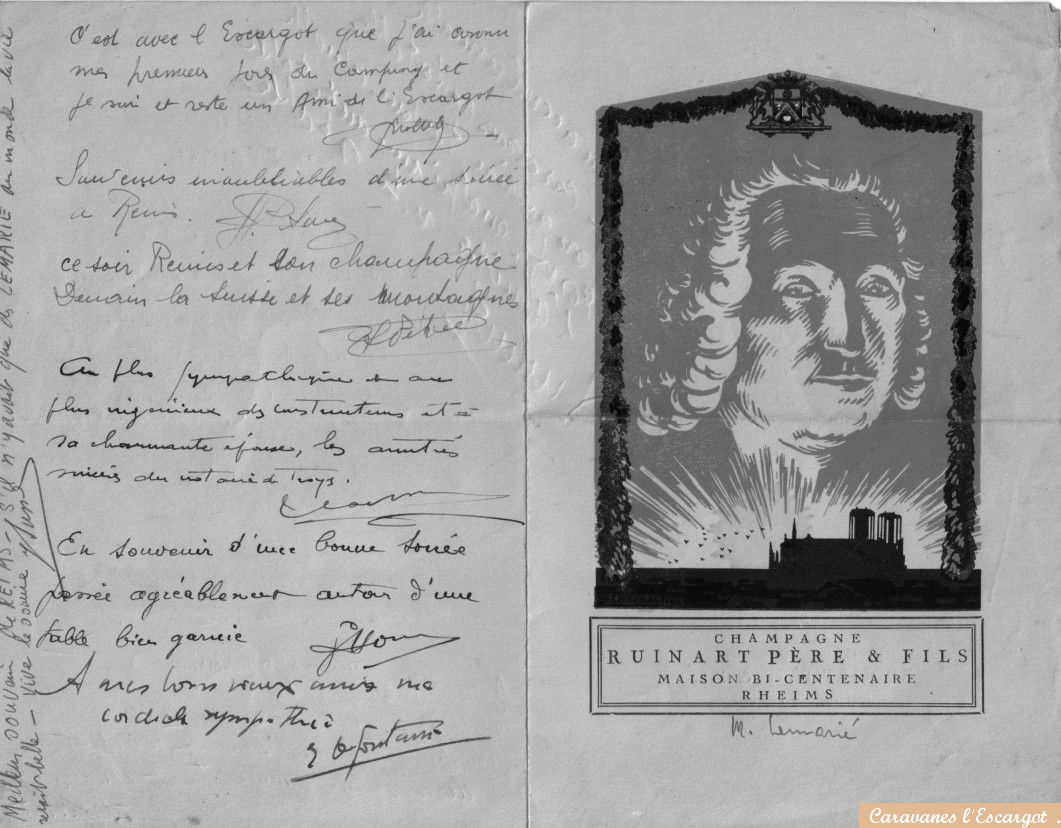 C'est avec l'Escargot que j'ai connu
mes premiers du Camping et
je suis et reste un Ami de l'Escargot
Souvenirs inoubliables d'une soirée
à Reims.
ce soir Reims et son champagne
Demain la Suisse et ses montagnes
Au plus sympathique et au
plus ingénieux des constructeurs et à
sa charmante épouse, les amitiés
du notaire de Troyes.
En souvenir d'une bonne soirée
passée agréablement autour d'une
table bien garnie
A mes bons vieux amis ma
cordiale sympathie
Meilleur souvenir de REIMS - S'il n'y avait que des LEMARIE au monde la vie
serait belle - Vive
CHAMPAGNE
RUINART PÈRE & FILS
MAISON BI-CENTENAIRE
RHEIMS
M. Lemarié
Caravanes l'Escargot